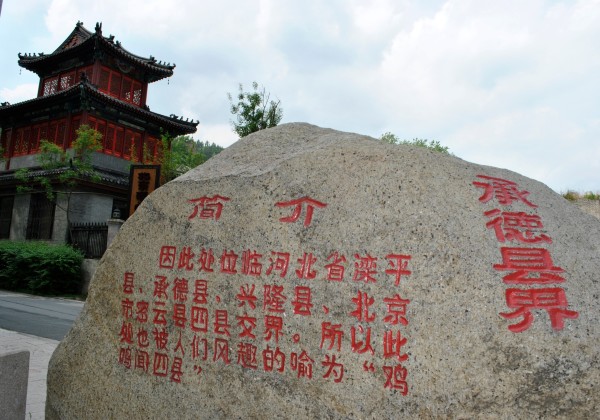 承德县界
简介
因此处位临河北省滦平
县、承德县、兴隆县、北京
市密云县四县交界。所以此
处也被人们风趣的喻为“鸡
鸣间四县”